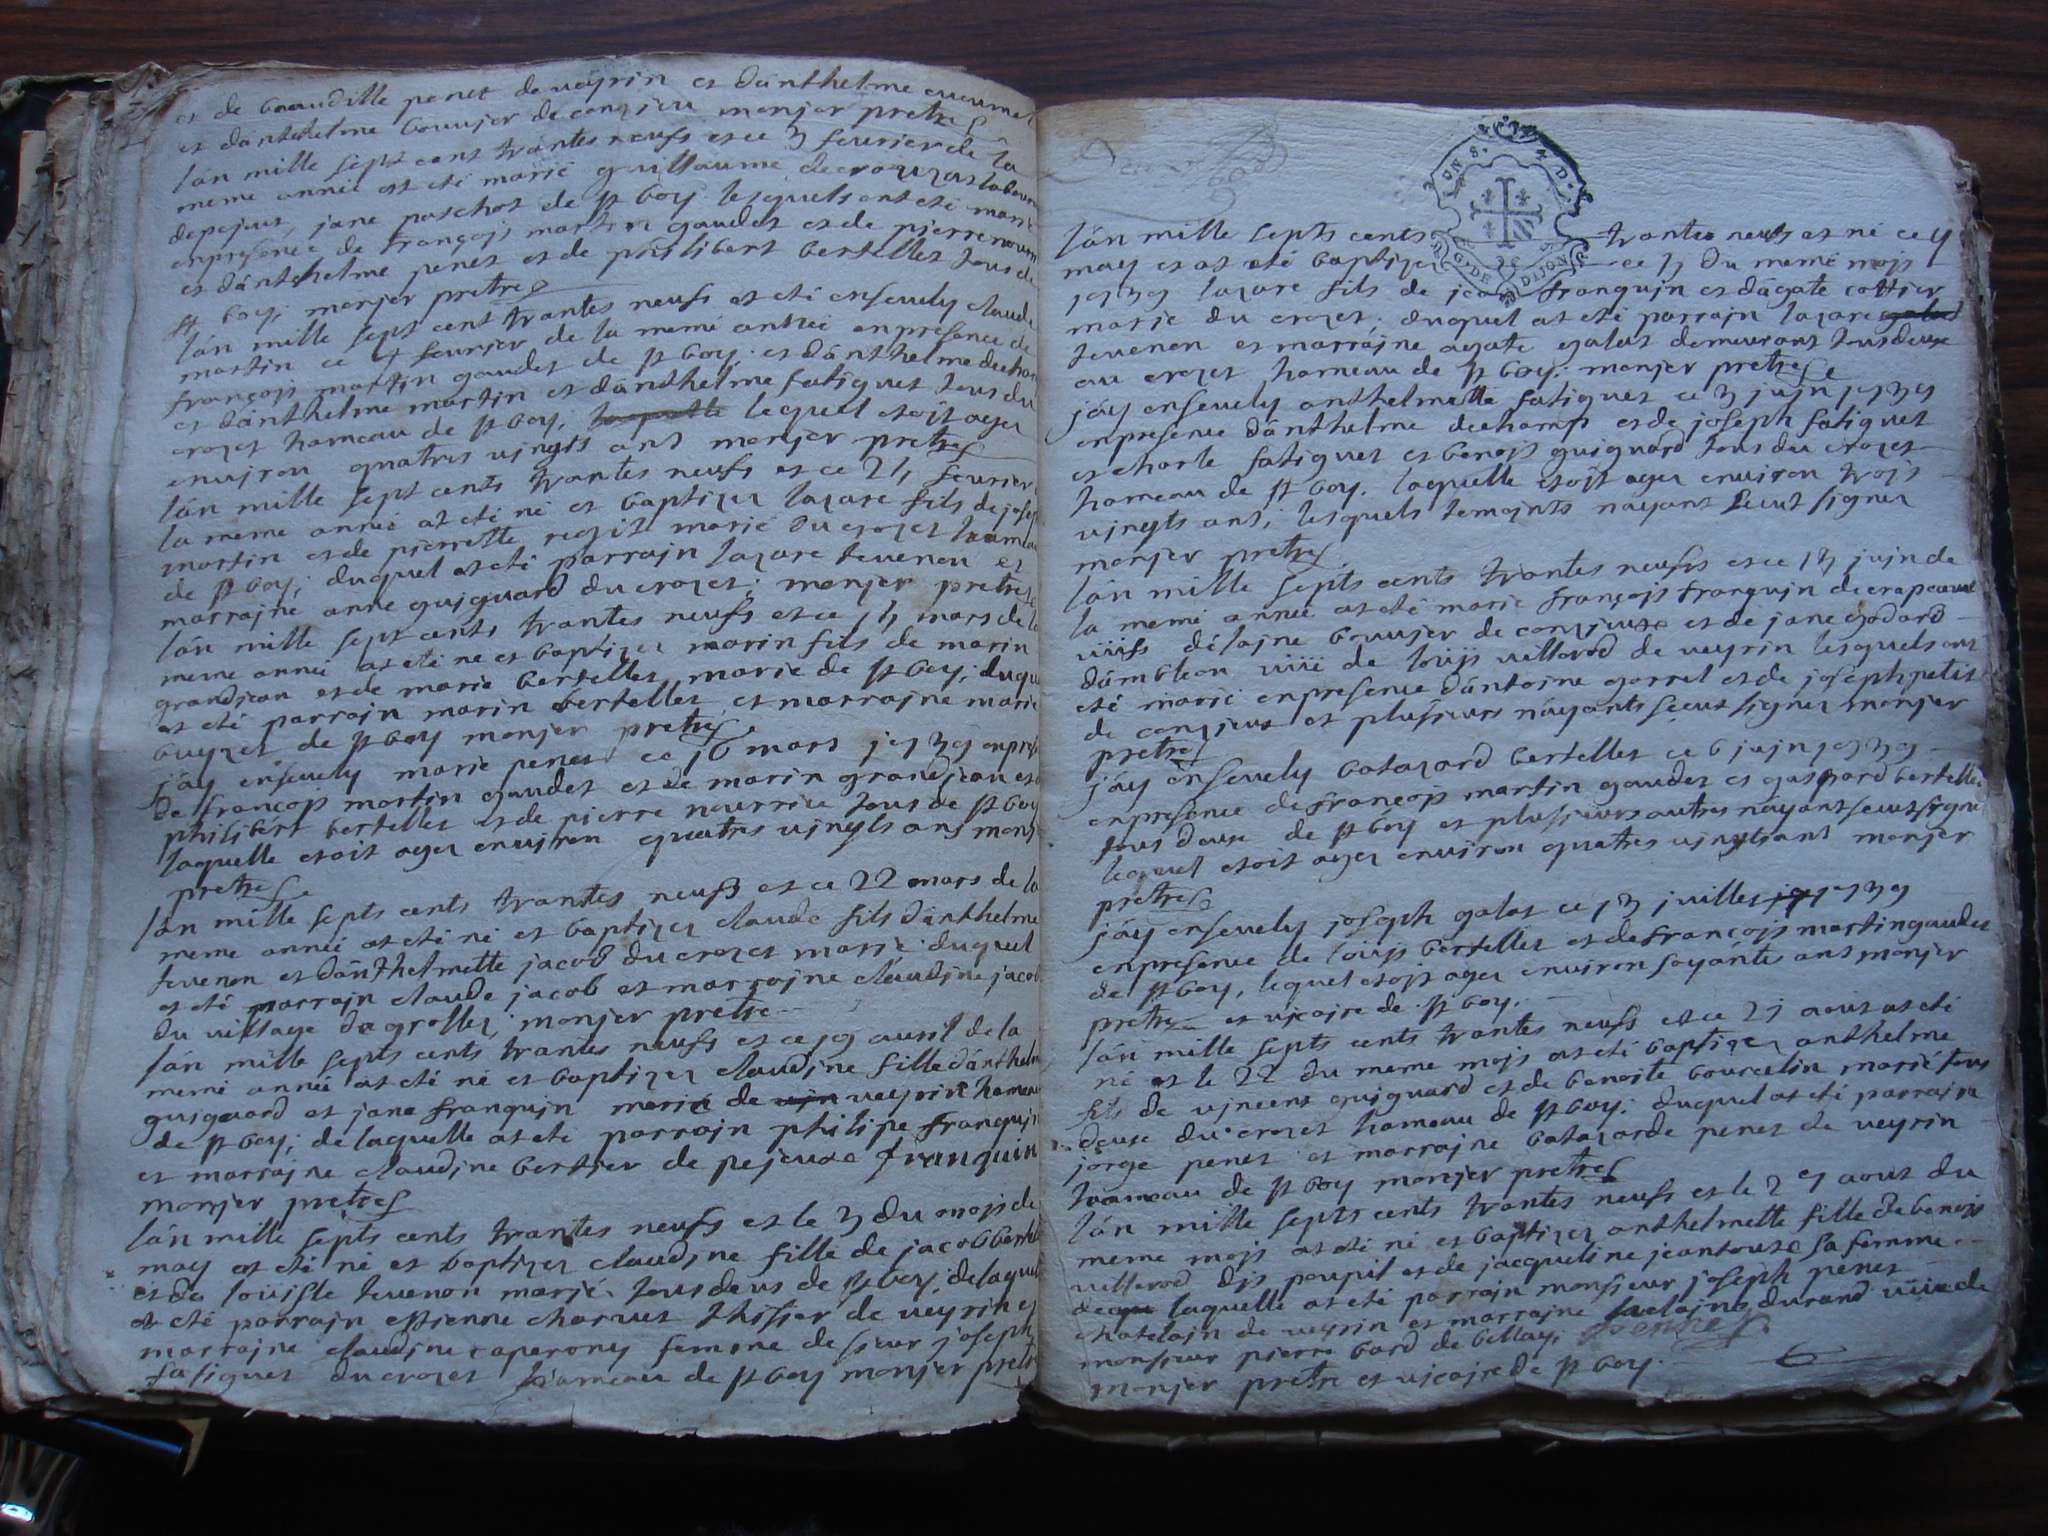 et de benudille penet de veyrin et dánthelme
et dánthelme bouvier de conzieu monier pretre
lán mille sept cent trantes neufs et ce 3 feurier de la
meme année at eté marié guillaume de
depejus, jane paschot de st boy lesquels ont eté marié
enpresence de françojs martin gaudet et de pierre
et dánthelme penet et de philibert bertellet tous de
st boys monjer pretre
lán mille sept cent trantes neufs at eté ensevely claude
martin ce 4 feurier de la meme année enpresence de
françojs martin gaudet de st boy et dánthelme dechan
et dánthelme martin et dánthelme fatiguet tous du
crozet hameau de st boy, laquelle lequel etojt agez
environ quatres vingts ans monjer pretre
lán mille sept cents trantes neufs et ce 24 feurier
la meme année at eté né et baptizez lazare fils de josep
martin et de pierrette marié du crozet hamea
de st boy; duquel at eté parrajn lazare tevenon et
marrajne anne guiguard du crozet; monjer pretre
lán mille sept cents trantes neufs et ce 14 mars de la
meme année at eté né et baptizez marin fils de marin
grandjean et de marie bertellet marié de st boy; duque
at eté parrajn marin bertellet et marrajne marie
buyzet de st boy monjer pretre
jáy ensevely marie penet ce 16 mars 1739 enpres
de françojs martin gaudet et de marin grandjean et d
philibért bertellet et de pierre nourrice tous de st boy
laquelle etoit agez environ quatres vingts ans monj
pretre
lán mille septs cents trantes neufs et ce 22 mars de la
meme année at eté né et baptizez claude fils dánthelme
tevenon et dánthelmette jacob du crozet marié duquel
at eté parrajn claude jacob et marrajne claudjne jacob
du village de grollez; monjer pretre
lán mille septs cents trantes neufs et ce 19 auril de la
meme année at eté né et baptizez claudjne fille dánthelm
guiguard et jane franquin marié de vejn veyrin hameau
de st boy; de laquelle at eté parrajn philipe franquin
et marrajne claudjne bertier de pejeuse franquin
monjer pretre
lán mille septs cents trantes neufs et le 3 du mojs de
may at eté né et baptizez claudjne fille de jacob bertel
et de louisse tevenon marjé tous deus de st boy; de laquel
at eté parrajn estienne charvet thisier de veyrin et
marrajne claudjne caperony femme de sieur joseph
fatiguet du crozet hameau de st boy monjer pretre
GEN S. 4 D.
G. DE DIJON
lán mille septs cents trantes neufs at né ce 4
may et at eté baptizez ce 5 du meme mojs
1739 lazare fils de jean franquin et dágate cottier
marié du crozet; duquel at eté parrajn lazare galat
tevenon et marrajne agate galat demeurant tous deux
au crozet hameau de st boy; monjer pretre
jáy ensevely anthelmette fatiguet ce 3 juin 1739
enpresence dánthelme dechamps et de joseph fatiguet
et charle fatiguet et benojs guiguard tous du crozet
hameau de st boy. laquelle etojt agez environ trojs
vingts ans; lesquels temojnts nayant seeut signer
monjer pretre
lán mille septs cents trantes neufs et ce 13 juin de
la meme année at eté marié françojs franquin de crapeaual
viufs délajne bouvjer de conzjeux et de jane godard
dámbleon viüe de louys villerod de veyrin lesquels ont
eté marié enpresence dántoine garrel et de joseph petit
de conzieux et plusieurs náyants seeut signer monjer
pretre
jáy énsevely batazard bertellet ce 6 juin 1739
enpresence de françojs martin gaudet et gaspard bertellet
tous deux de st boy et plusieurs autres náyant seeut signe
lequel etoit agez environ quatres vingts ans monjer
pretre
jáy ensevely joseph galat ce 13 juillet 1739
enpresence de louys bertellet et de françojs martin gaudet
de st boy, lequel etojt agez environ soyánte ans monjer
pretre et vicaire de st boy.
lán mille septs cents trantes neufs et ce 21 aout at eté
né et le 22 du meme mojs at eté baptizez anthelme
fils de vincent guiguard et de benoite bourcelin marié tous
deux du crozet hameau de st boy; duquel at eté parrajn
jorge penet et marrajne batazarde penet de veyrin
hameau de st boy monjer pretre
lán mille septs cents trantes neufs et le 29 aout du
meme mojs at eté né et baptizez anthelmette fille de benojs
villerod djs poupil et de jacqueline jeantouse sa femme
laquelle at eté parrajn monsieur joseph penet
chatelajn de veyrin et marrajne durand viüe de
monsieur pierre bard de bellay; penet
monjer pretre et vicajre de st boy.